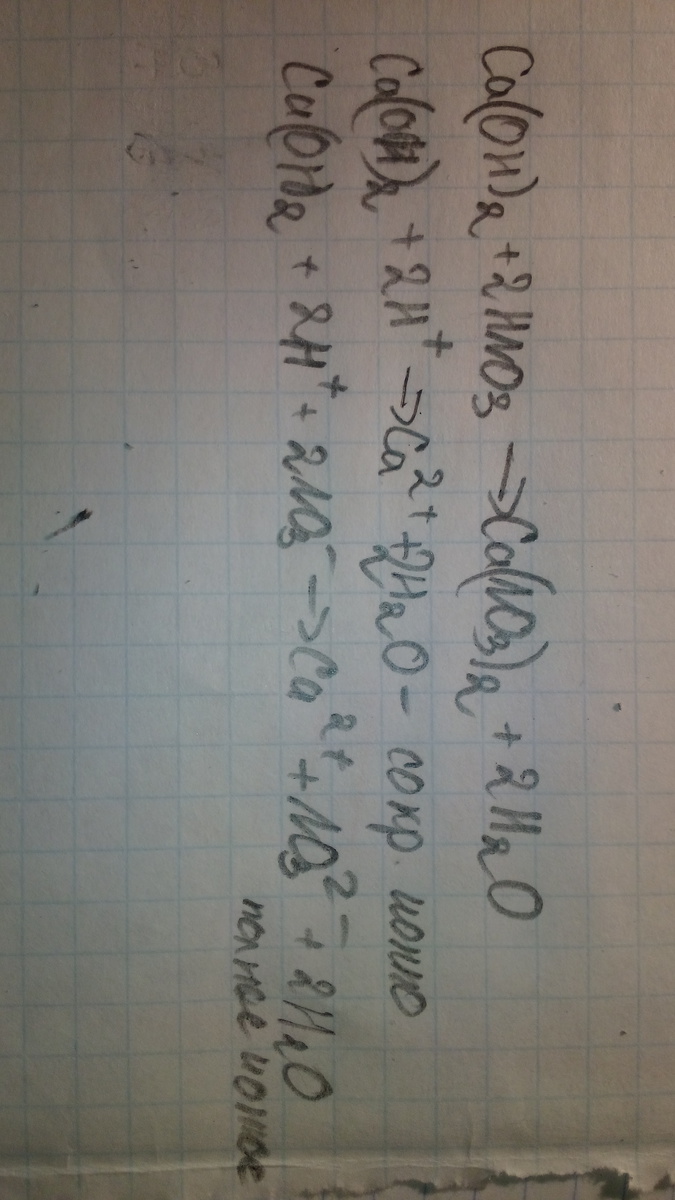 Ca(OH)₂ + 2HNO₃ → Ca(NO₃)₂ + 2H₂O
Ca(OH)₂ + 2H⁺ → Ca²⁺ + 2H₂O – сокр. ионно
Ca(OH)₂ + 2H⁺ + 2NO₃⁻ → Ca²⁺ + NO₃²⁻ + 2H₂O
полное ионное